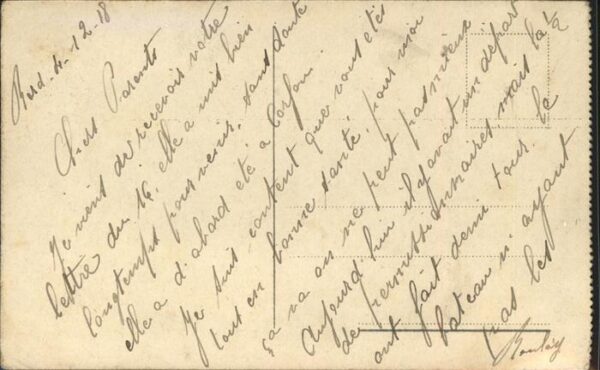 4-12-18
Chers Parents
Je viens de recevoir votre
lettre du 14, elle a mis bien
longtemps pour venir, sans doute
elle a d'abord été à Corfou.
Je suis content que vous êtes
tout en bonne santé, pour moi
ça va on ne peut pas mieux
Aujourd'hui il y avait un départ
de permissionnaires, mais la 1/2
ont fait demi tour le
bateau n'ayant
pas les